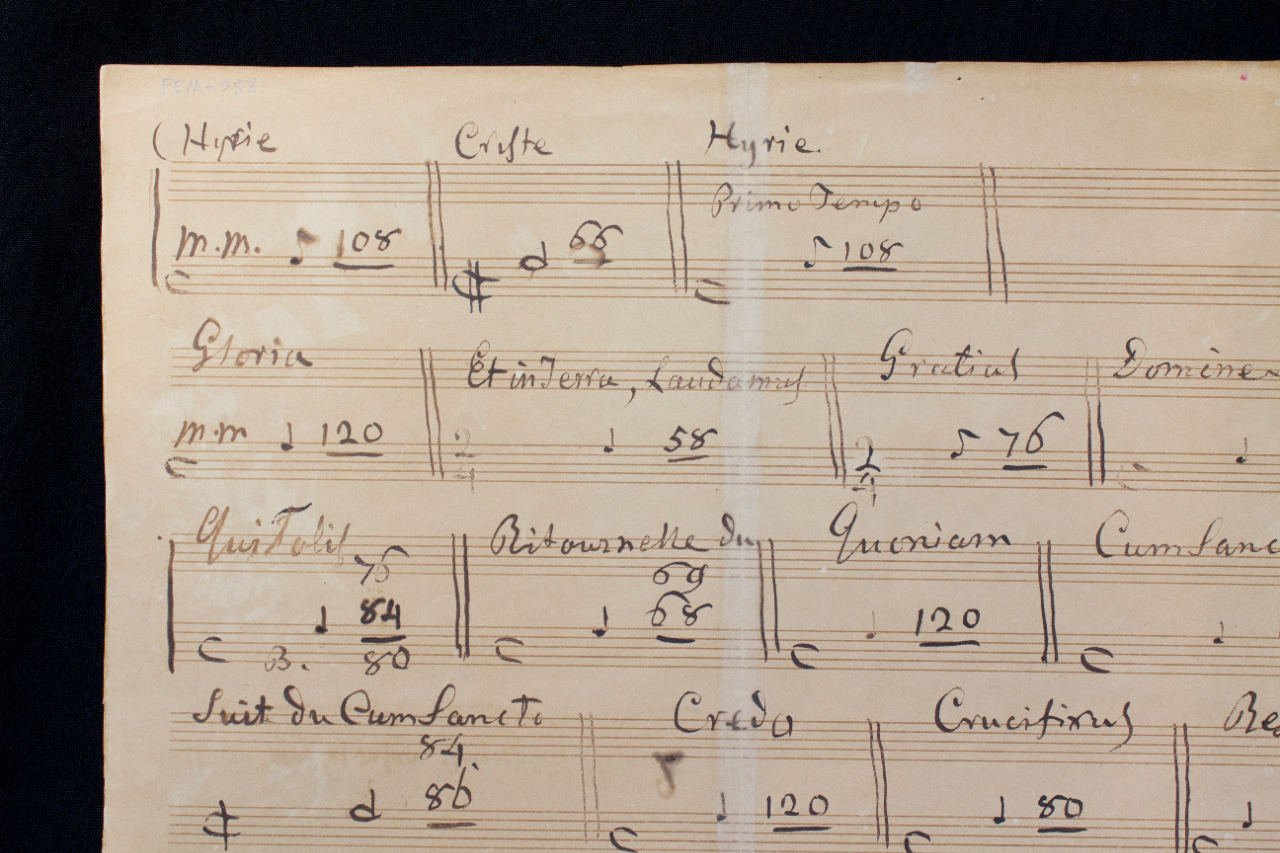 (Hyrie Criste Hyrie.
Primo Tempo
m.m. ♪ 108 𝄵 𝅗𝅥 66 ♪ 108
Gloria Et in Terra, Laudamus Gratias Domine
m.m ♩ 120 2/4 ♩ 58 2/4 ♪ 76 ♩
Qui Tolis Ritournelle du Quoniam Cum Sanc
76 69
♩ 84 ♩ 68 ♩ 120 ♩
B. 80
Suit du Cum Sancto Credo Crucifixus Re
84
𝄵 𝅗𝅥 86 ♩ 120 ♩ 80 ♩